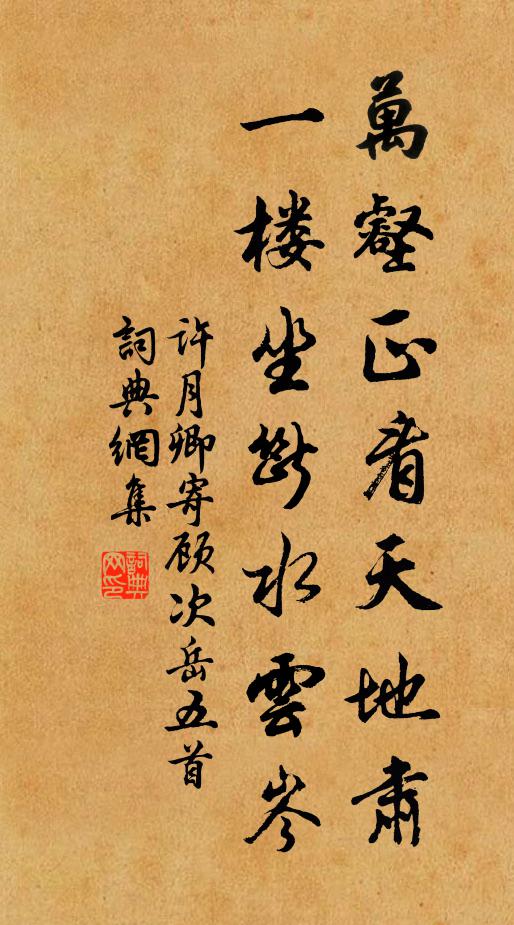 萬壑正看天地肅
一楼坐断水雲岑
許月卿寄顾次岳五首
詞典網集
詞典網印